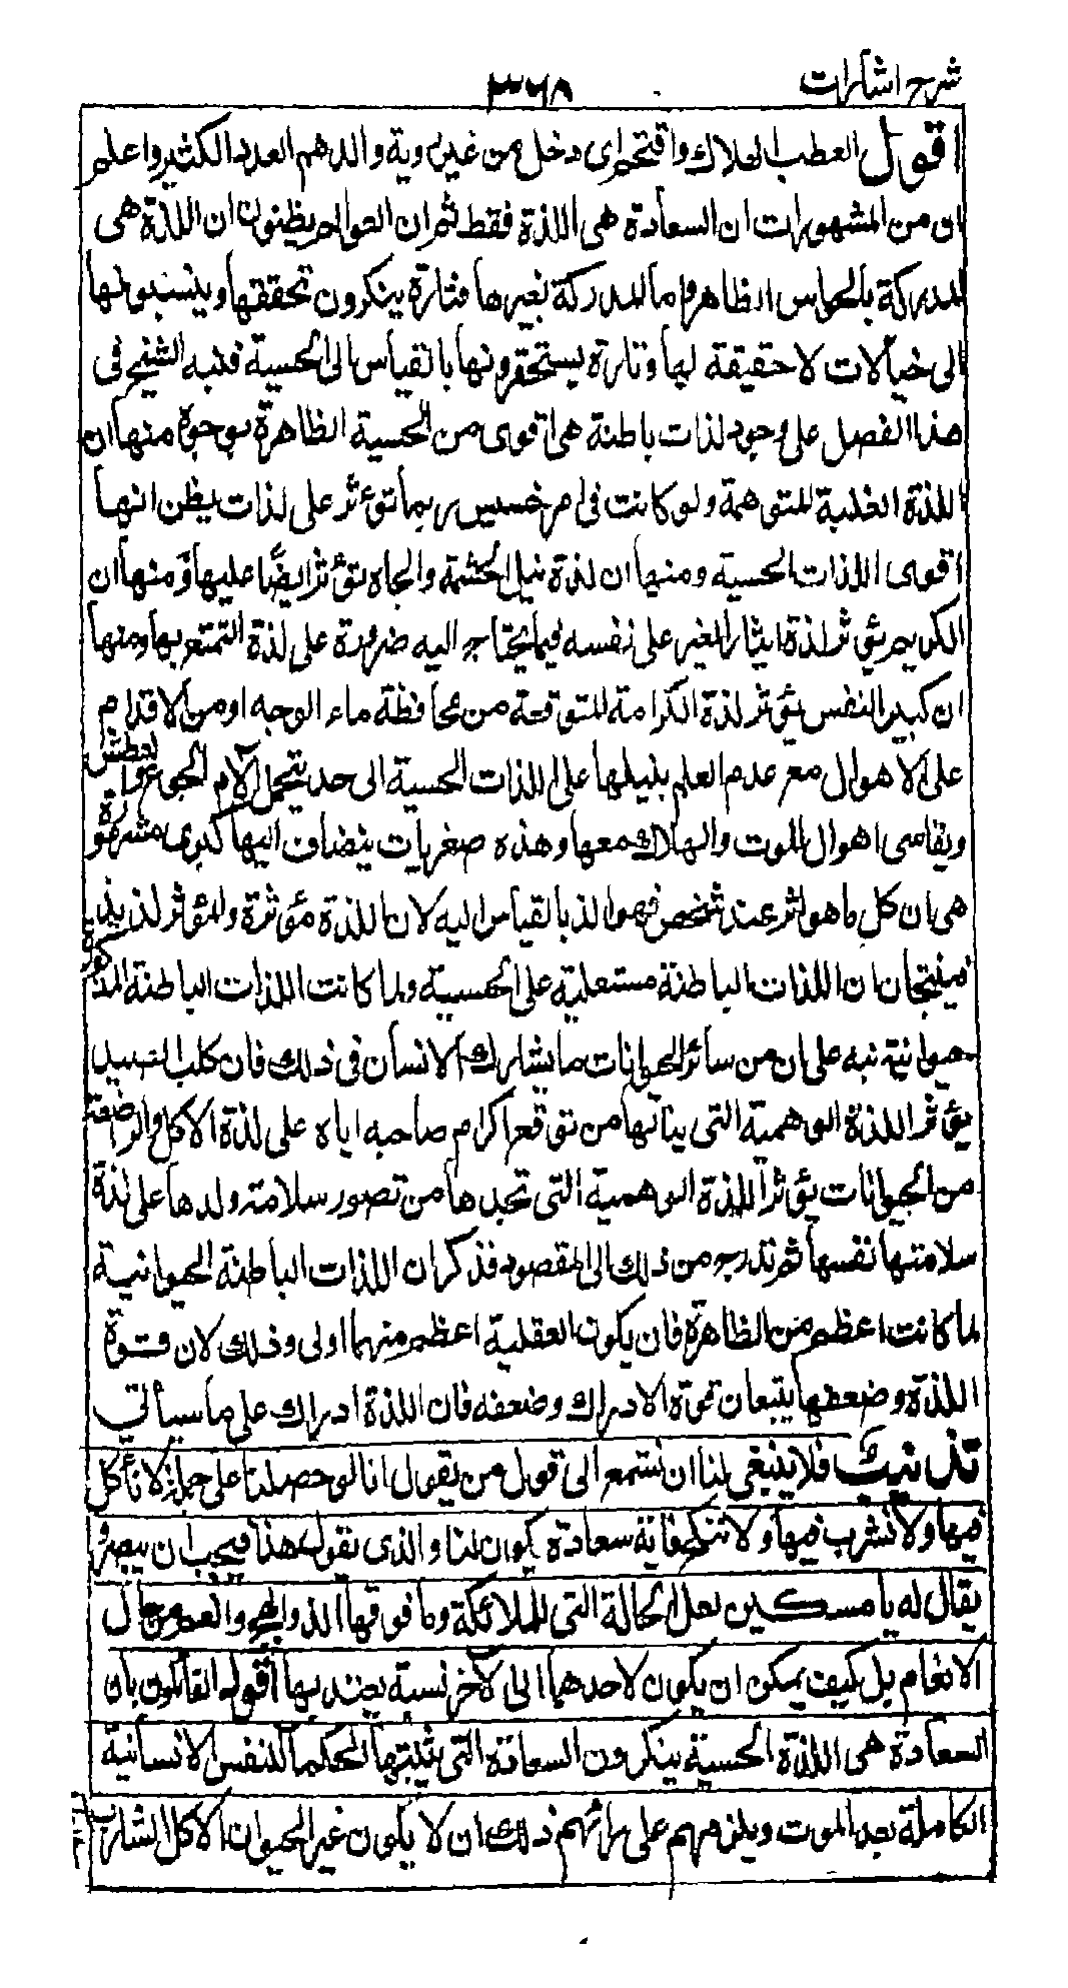 شرح اشارات
٣٦٨
اقول العطب الهلاك واقتحم اى دخل من غير روية والدهم العدد الكثير واعلم
ان من المشهورات ان السعادة هى اللذة فقط ثم ان العوام يظنون ان اللذة هى
المدركة بالحواس الظاهرة واما المدركة بغيرها فتارة ينكرون تحققها وينسبونها
الى خيالات لا حقيقة لها وتارة يستحقرونها بالقياس الى الحسية فنبه الشيخ فى
هذا الفصل على وجود لذات باطنة هى اقوى من الحسية الظاهرة بوجوه منها ان
اللذة الغلبة المتوهمة ولو كانت فى امر خسيس ربما تؤثر على لذات يظن انها
اقوى اللذات الحسية ومنها ان لذة نيل الحشمة والجاه يتؤثر ايضًا عليها ومنها ان
الكريم يؤثر لذة ايثار الغير على نفسه فيما يحتاج اليه ضرورة على لذة التمتع بها ومنها
ان كبير النفس يؤثر لذة الكرامة المتوقعة من محافظة ماء الوجه او من الاقدام
على الاهوال مع عدم العلم بنيلها على اللذات الحسية الى حد يتحمل الآم الجوع والعطش
ويقاسى اهوال الموت والهلاك معها وهذه صغريات ينضاف اليها كبرى مشهورة
هى ان كل ما هو اثر عند شخص فهو الذ بالقياس اليه لان اللذة مؤثرة والمؤثر لذيذ
فينتجان ان اللذات الباطنة مستعلية على الحسية ولما كانت اللذات الباطنة المذكورة
حيوانية نبه على ان من سائر الحيوانات ما يشارك الانسان فى ذلك فان كلب الصيد
يؤثر اللذة الوهمية التى ينالها من توقع اكرام صاحبه اياه على لذة الاكل والراضعة
من الحيوانات يؤثر اللذة الوهمية التى تجدها من تصور سلامة ولدها على لذة
سلامتها نفسها ثم تدرج من ذلك الى المقصود فذكر ان اللذات الباطنة الحيوانية
لما كانت اعظم من الظاهرة فان يكون العقلية اعظم منهما اولى وذلك لان قوة
اللذة وضعفها يتبعان قوة الادراك وضعفه فان اللذة ادراك على ما سيأتى
تذنيب فلا ينبغى لنا ان نستمع الى قول من يقول انا لو حصلنا على جملة لا نأكل
فيها ولا نشرب فيها ولا ننكح فاية سعادة يكون لنا والذى يقول هذا فيجب ان يبصر و
يقال له يا مسكين لعل الحالة التى للملائكة وما فوقها الذ وابهج وانعم من حال
الانعام بل كيف يمكن ان يكون لاحدهما الى الآخر نسبة يعتد بها اقول القائلون بان
السعادة هى اللذة الحسية ينكرون السعادة التى يثبتها الحكماء للنفس الانسانية
الكاملة بعد الموت ويلزمهم على رائهم ذلك ان لا يكون غير الحيوان الاكل الشارب